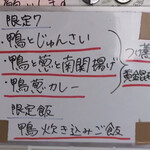 限定7
・鴨とじゅんさい
・鴨と葱と南関揚げ
・鴨葱カレー
限定飯
鴨炊き込みご飯